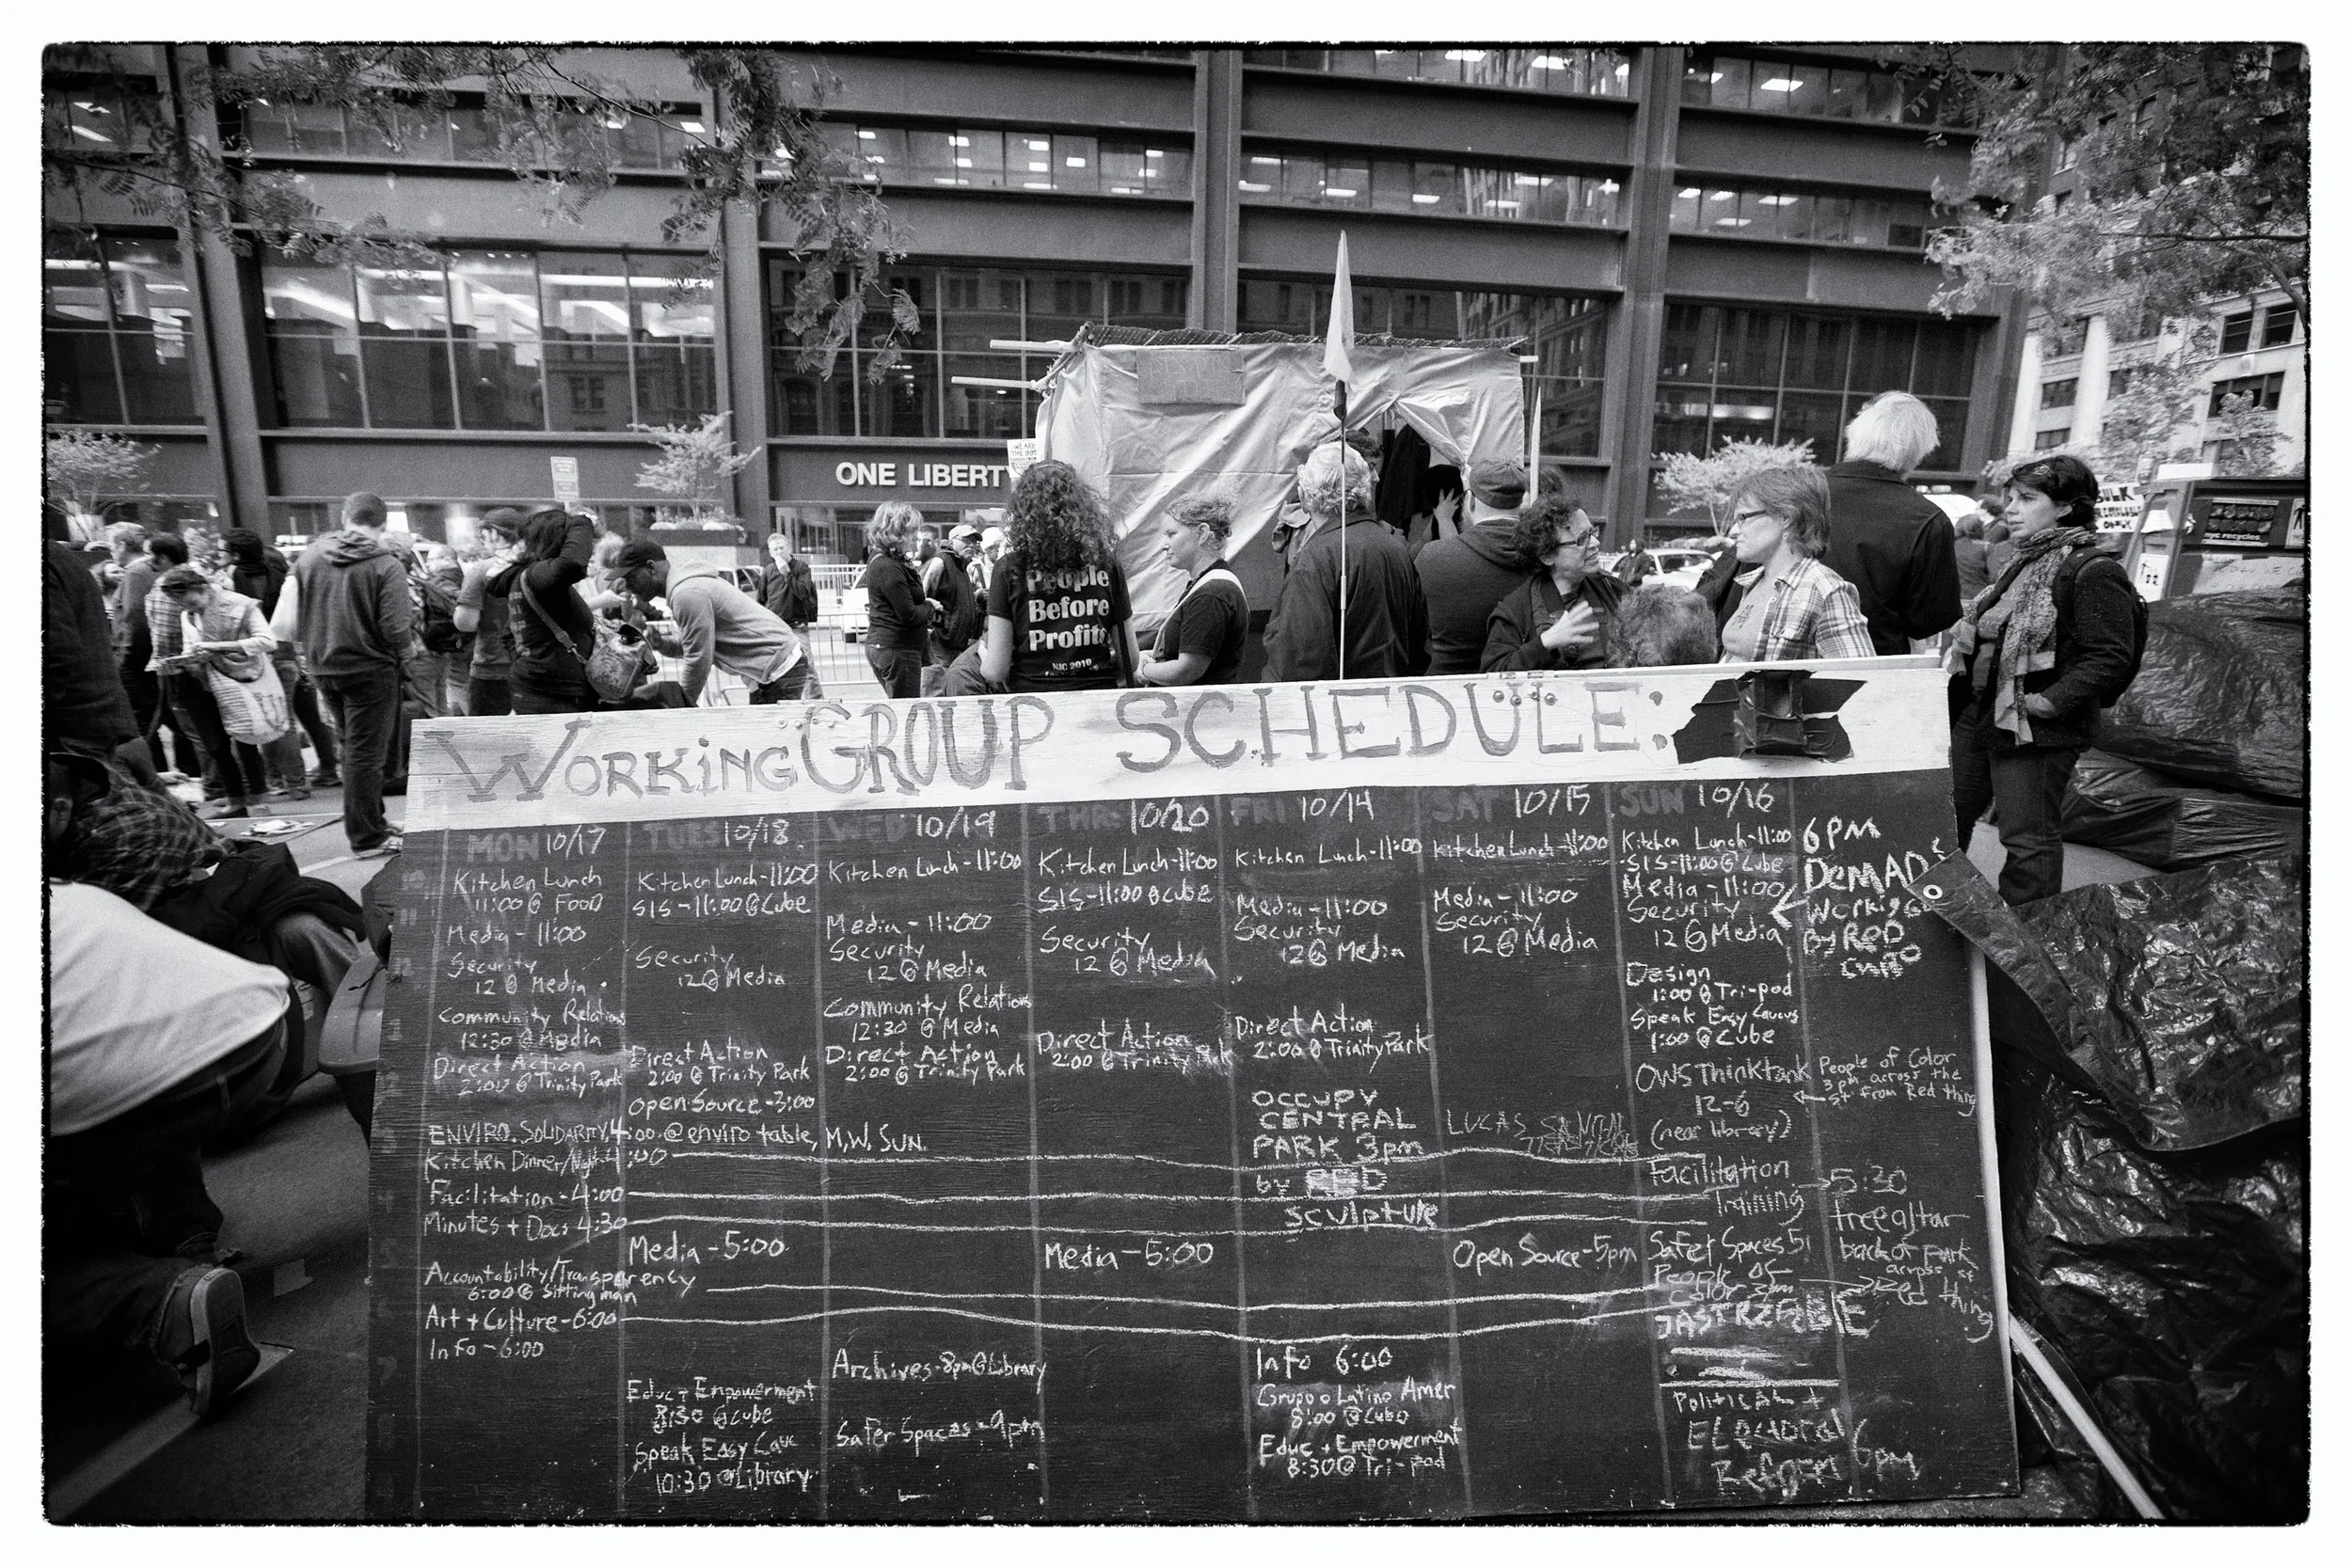 ONE LIBERTY
WE ARE
THE 99%
People
Before
Profits
NJC 2010
BULK
nyc recycles
WORKiNG GROUP SCHEDULE:
MON 10/17
Kitchen Lunch
11:00 @ FOOD
Media - 11:00
Security
12 @ Media
Community Relations
12:30 @ Media
Direct Action
2:00 @ Trinity Park
ENVIRO. SOLIDARITY, 4:00. @ enviro table, M, W, SUN.
Kitchen Dinner/Night 4:00
Facilitation - 4:00
Minutes + Docs 4:30
Accountability/Transparency
6:00 @ Sitting man
Art + Culture - 6:00
Info - 6:00
TUES 10/18
Kitchen Lunch - 11:00
SIS - 11:00 @ Cube
Security
12 @ Media
Direct Action
2:00 @ Trinity Park
Open Source - 3:00
Media - 5:00
Educ + Empowerment
8:30 @ cube
Speak Easy Cauc
10:30 @ Library
WED 10/19
Kitchen Lunch - 11:00
Media - 11:00
Security
12 @ Media
Community Relations
12:30 @ Media
Direct Action
2:00 @ Trinity Park
Archives - 8pm @ Library
Safer Spaces - 9pm
THR: 10/20
Kitchen Lunch - 11:00
SIS - 11:00 @ cube
Security
12 @ Media
Direct Action
2:00 @ Trinity Park
Media - 5:00
FRI 10/14
Kitchen Lunch - 11:00
Media - 11:00
Security
12 @ Media
Direct Action
2:00 @ Trinity Park
OCCUPY
CENTRAL
PARK 3pm
by RED
Sculpture
Info 6:00
Grupo o Latino Amer
8:00 @ Cubo
Educ + Empowerment
8:30 @ Tri-pod
SAT 10/15
Kitchen Lunch - 11:00
Media - 11:00
Security
12 @ Media
LUCAS
Open Source - 5pm
SUN 10/16
Kitchen Lunch - 11:00
SIS - 11:00 @ Cube
Media - 11:00
Security
12 @ Media
Design
1:00 @ Tri-pod
Speak Easy Caucus
1:00 @ Cube
OWS Thinktank
12-6
(near library)
Facilitation
Training
Safer Spaces 5
People of
Color 3pm
Political +
Electoral
Reform 6pm
6PM
DEMAD
Workig G
By RED
People of Color
3pm across the
st from Red thing
5:30
free altar
back of park
across st
Red thing